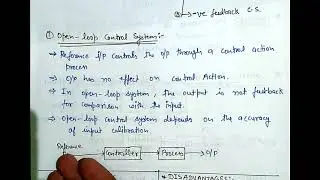 → -ve feedback C.S.
① Open-loop Control System:-
→ Reference I/P controls the o/p through a control action process
→ O/P has no effect on control Action.
→ In open-loop system, the output is not feedback for comparison with the input.
→ Open-loop control system depends on the accuracy of input calibration
Reference
Controller → Process → O/P
* DISADVANTAGES:-